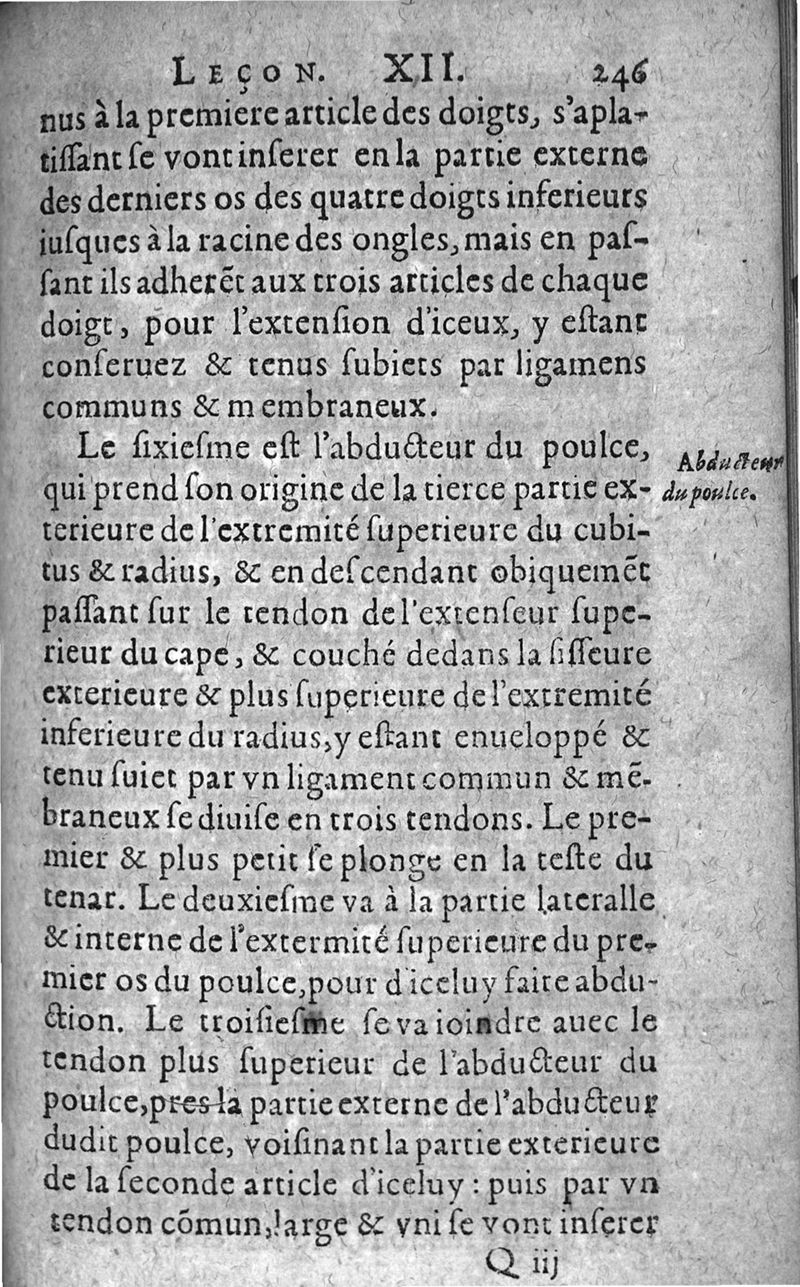 LEÇON. XII. 246
nus à la premiere article des doigts, s'apla-
tiſſant ſe vont inſerer en la partie externe
des derniers os des quatre doigts inferieurs
iuſques à la racine des ongles, mais en paſ-
ſant ils adherẽt aux trois articles de chaque
doigt, pour l'extenſion d'iceux, y eſtant
conſeruez & tenus ſubiets par ligamens
communs & membraneux.
Le ſixieſme eſt l'abducteur du poulce,
Abducteur
qui prend ſon origine de la tierce partie ex-
du poulce.
terieure de l'extremité ſuperieure du cubi-
tus & radius, & en deſcendant obiquemẽt
paſſant ſur le tendon de l'extenſeur ſupe-
rieur du cape, & couché dedans la ſiſſeure
exterieure & plus ſuperieure de l'extremité
inferieure du radius, y eſtant enueloppé &
tenu ſuiet par vn ligament commun & mẽ-
braneux ſe diuiſe en trois tendons. Le pre-
mier & plus petit ſe plonge en la teſte du
tenar. Le deuxieſme va à la partie lateralle
& interne de l'extermité ſuperieure du pre-
mier os du poulce, pour d'iceluy faire abdu-
ction. Le troiſieſme ſe va ioindre auec le
tendon plus ſuperieur de l'abducteur du
poulce, pres la partie externe de l'abducteur
dudit poulce, voiſinant la partie exterieure
de la ſeconde article d'iceluy : puis par vn
tendon cõmun, large & vni ſe vont inſerer
Q iij